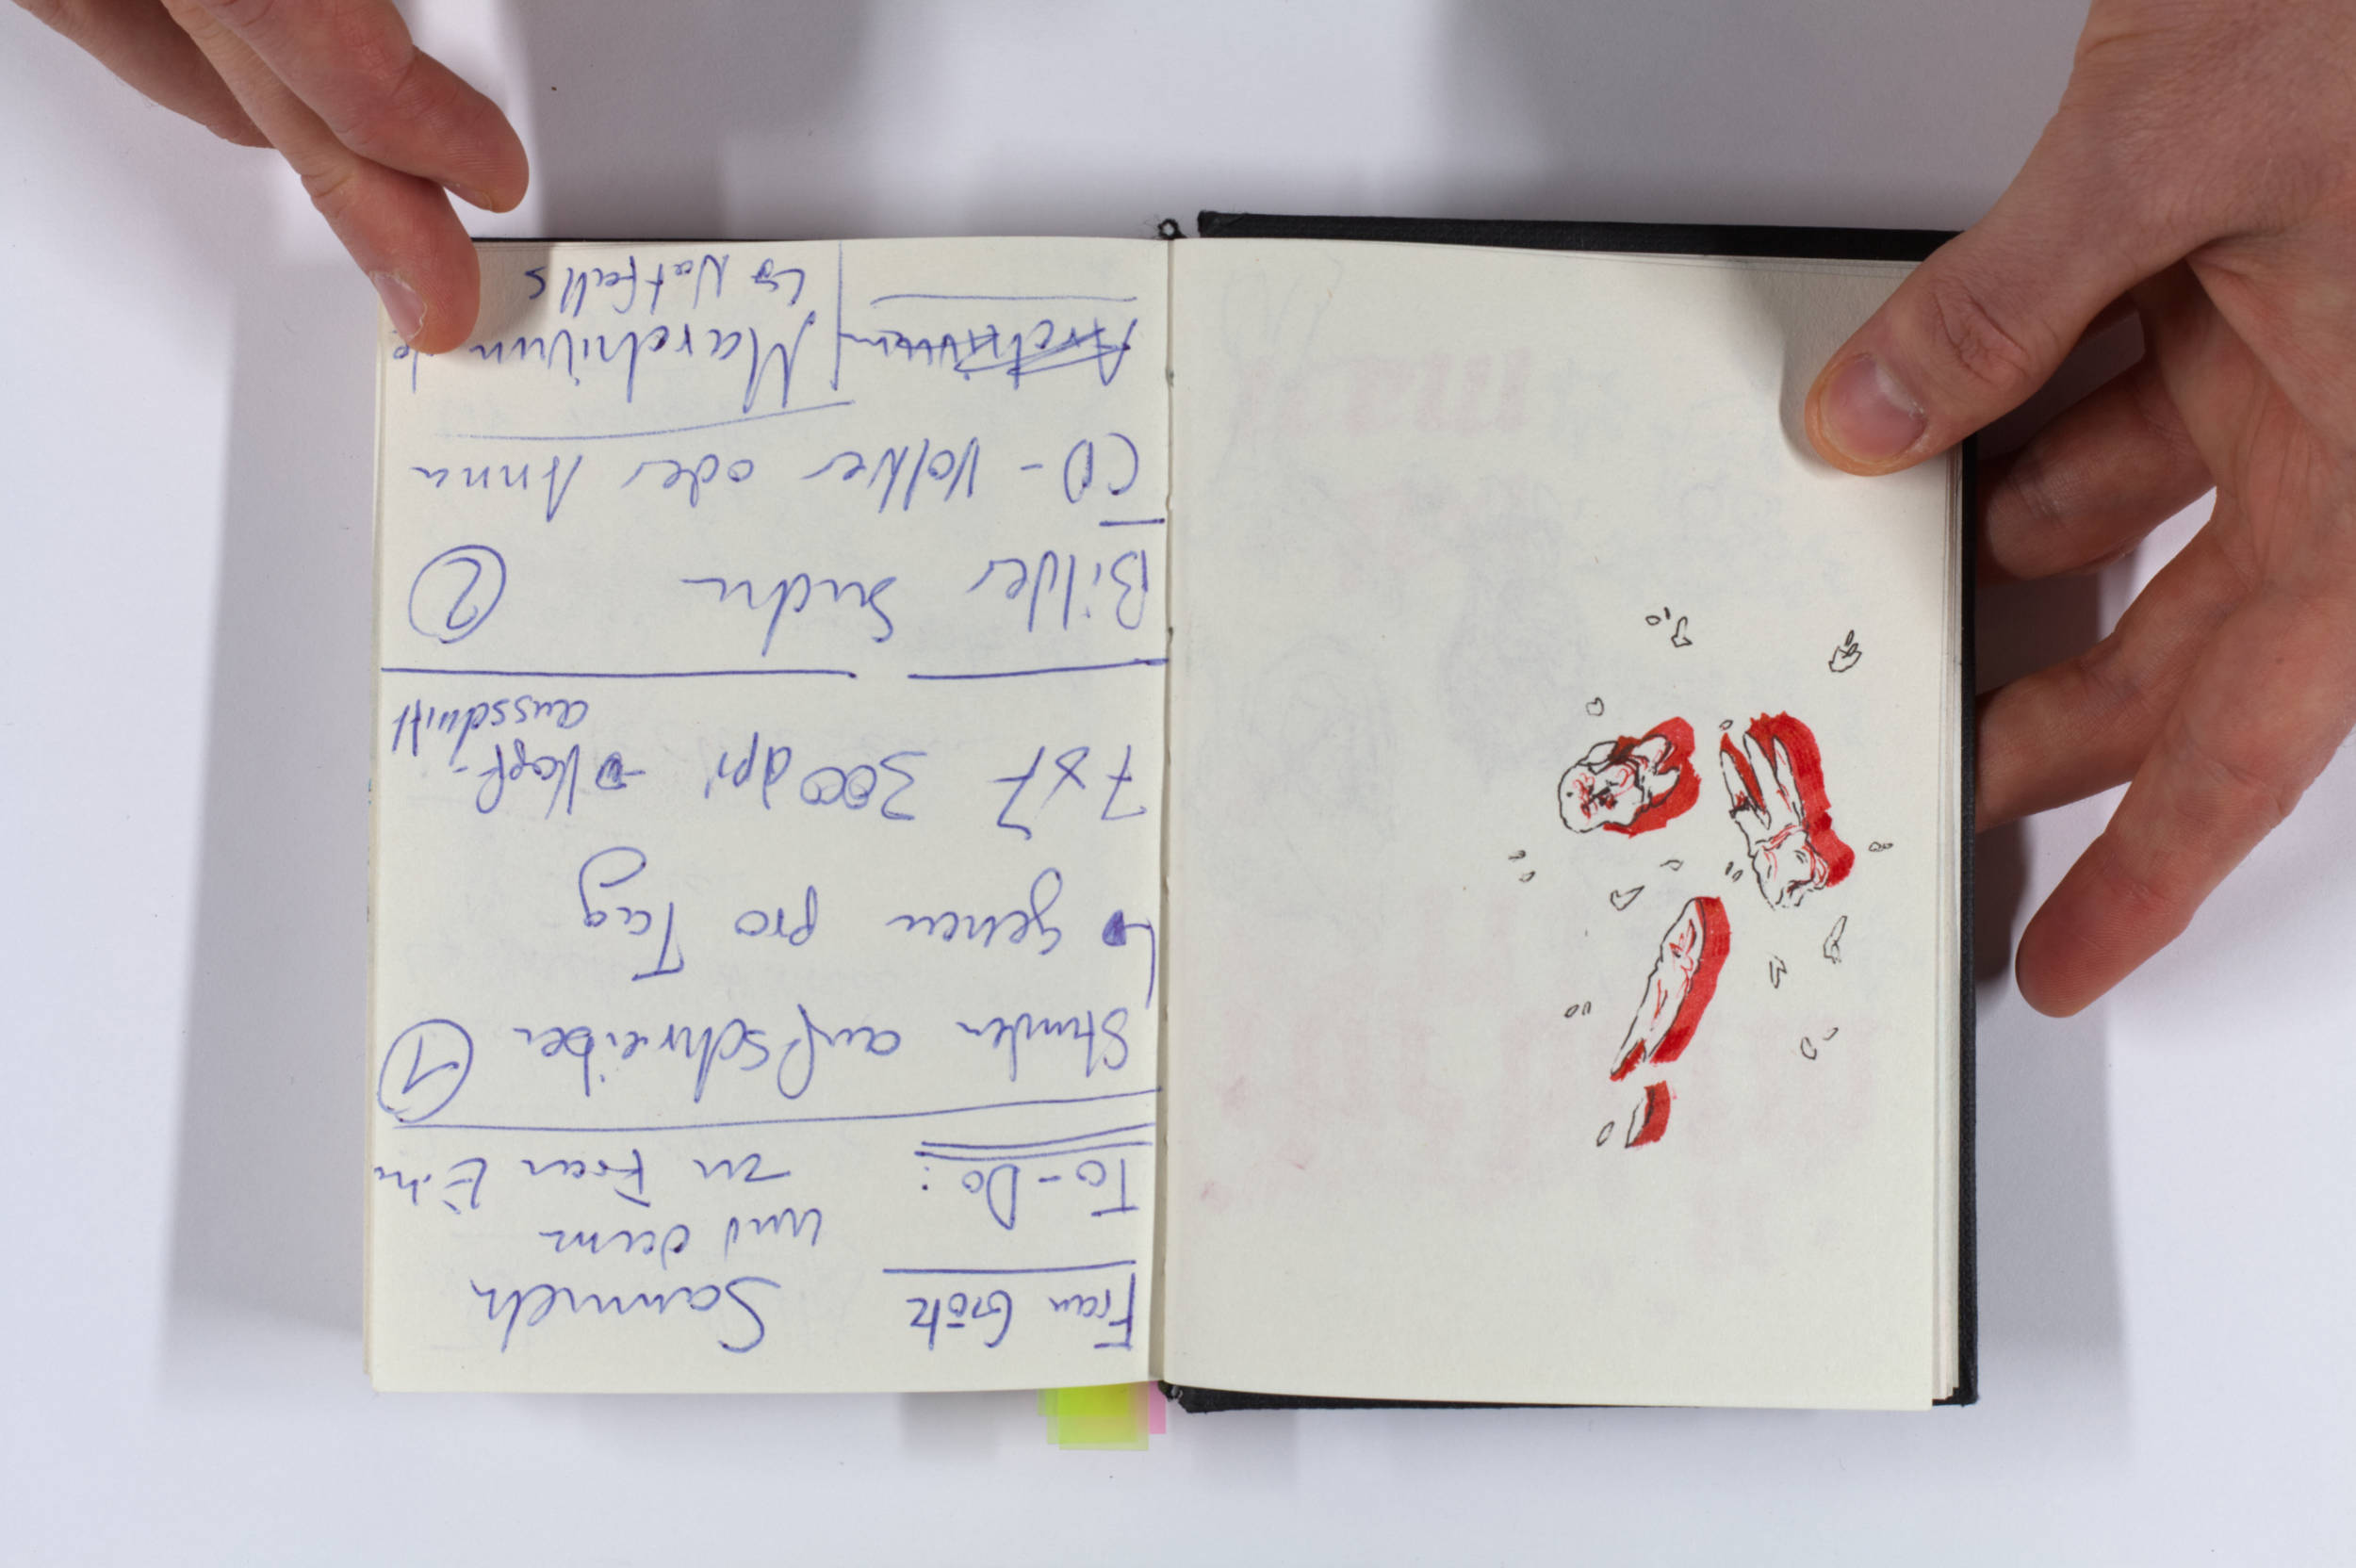 Frau Götz
Sammeln
und dann
zu Frau
To-Do:
Stunden aufschreiben ①
↳ genau pro Tag
7x7 300dpi → Kopf-
ausschnitt
Bilder suchn ②
CD - Volker oder Anna
↳ Notfalls